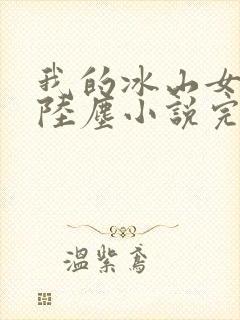 我的冰山女
陸塵小說完
溫紫鳶